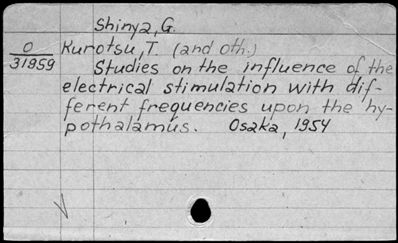 Shinya, G.
0 Kurotsu, T. (and oth.)
31959 Studies on the influence of the
electrical stimulation with dif-
ferent frequencies upon the hy-
pothalamus. Osaka, 1954